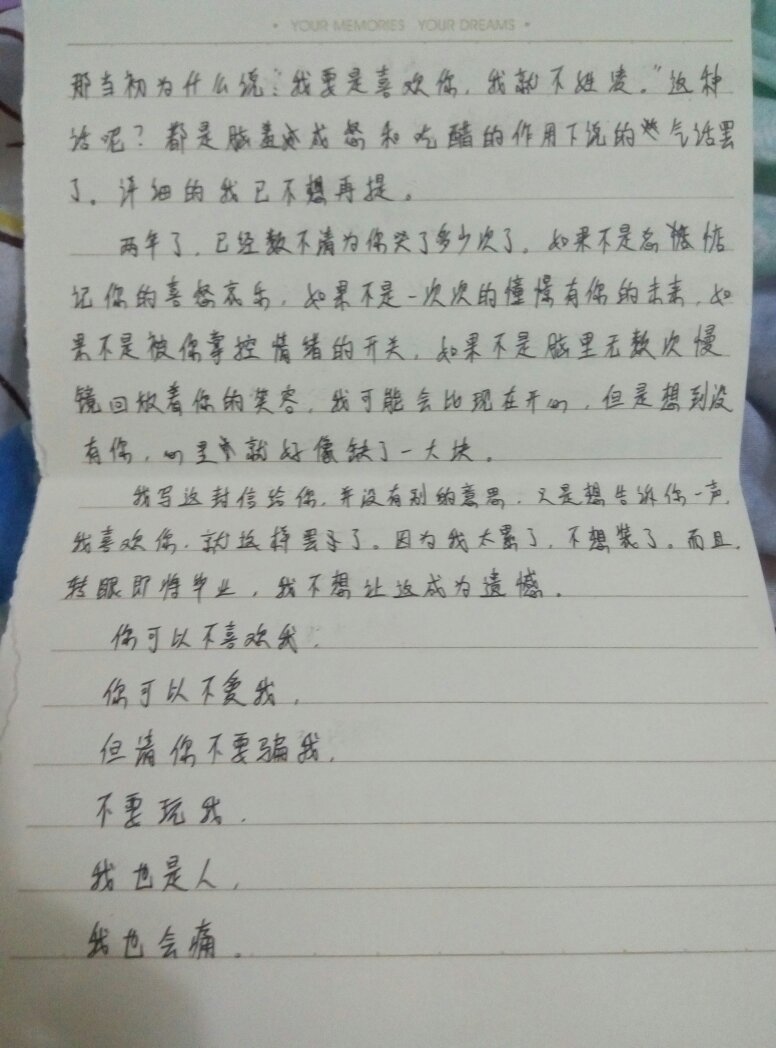 • YOUR MEMORIES YOUR DREAMS •
那当初为什么说:“我要是喜欢你,我就不姓凌。”这种
话呢?都是脑羞成怒和吃醋的作用下说的气话罢
了。详细的我已不想再提。
两年了,已经数不清为你哭了多少次了,如果不是总惦
记你的喜怒哀乐,如果不是一次次的憧憬有你的未来,如
果不是被你掌控情绪的开关,如果不是脑里无数次慢
镜回放着你的笑容,我可能会比现在开心,但是想到没
有你,心里就好像缺了一大块。
我写这封信给你,并没有别的意思,只是想告诉你一声,
我喜欢你,就这样罢了。因为我太累了,不想装了。而且,
转眼即将毕业,我不想让这成为遗憾。
你可以不喜欢我,
你可以不爱我,
但请你不要骗我,
不要玩我,
我也是人,
我也会痛。